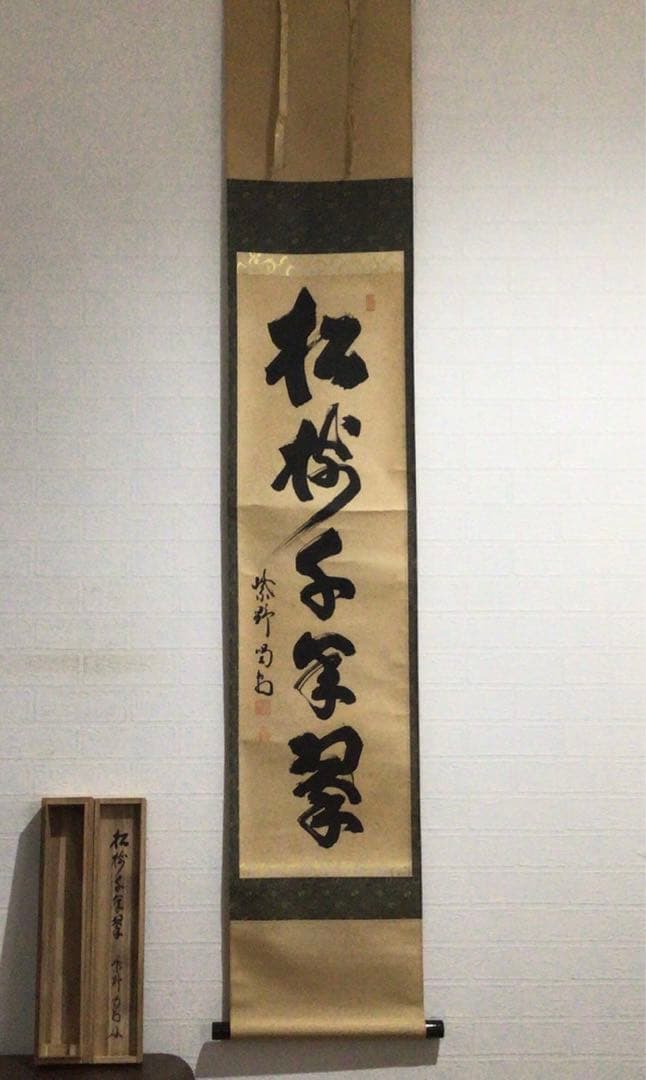 松樹千年翠
紫野
松樹千年翠
紫野